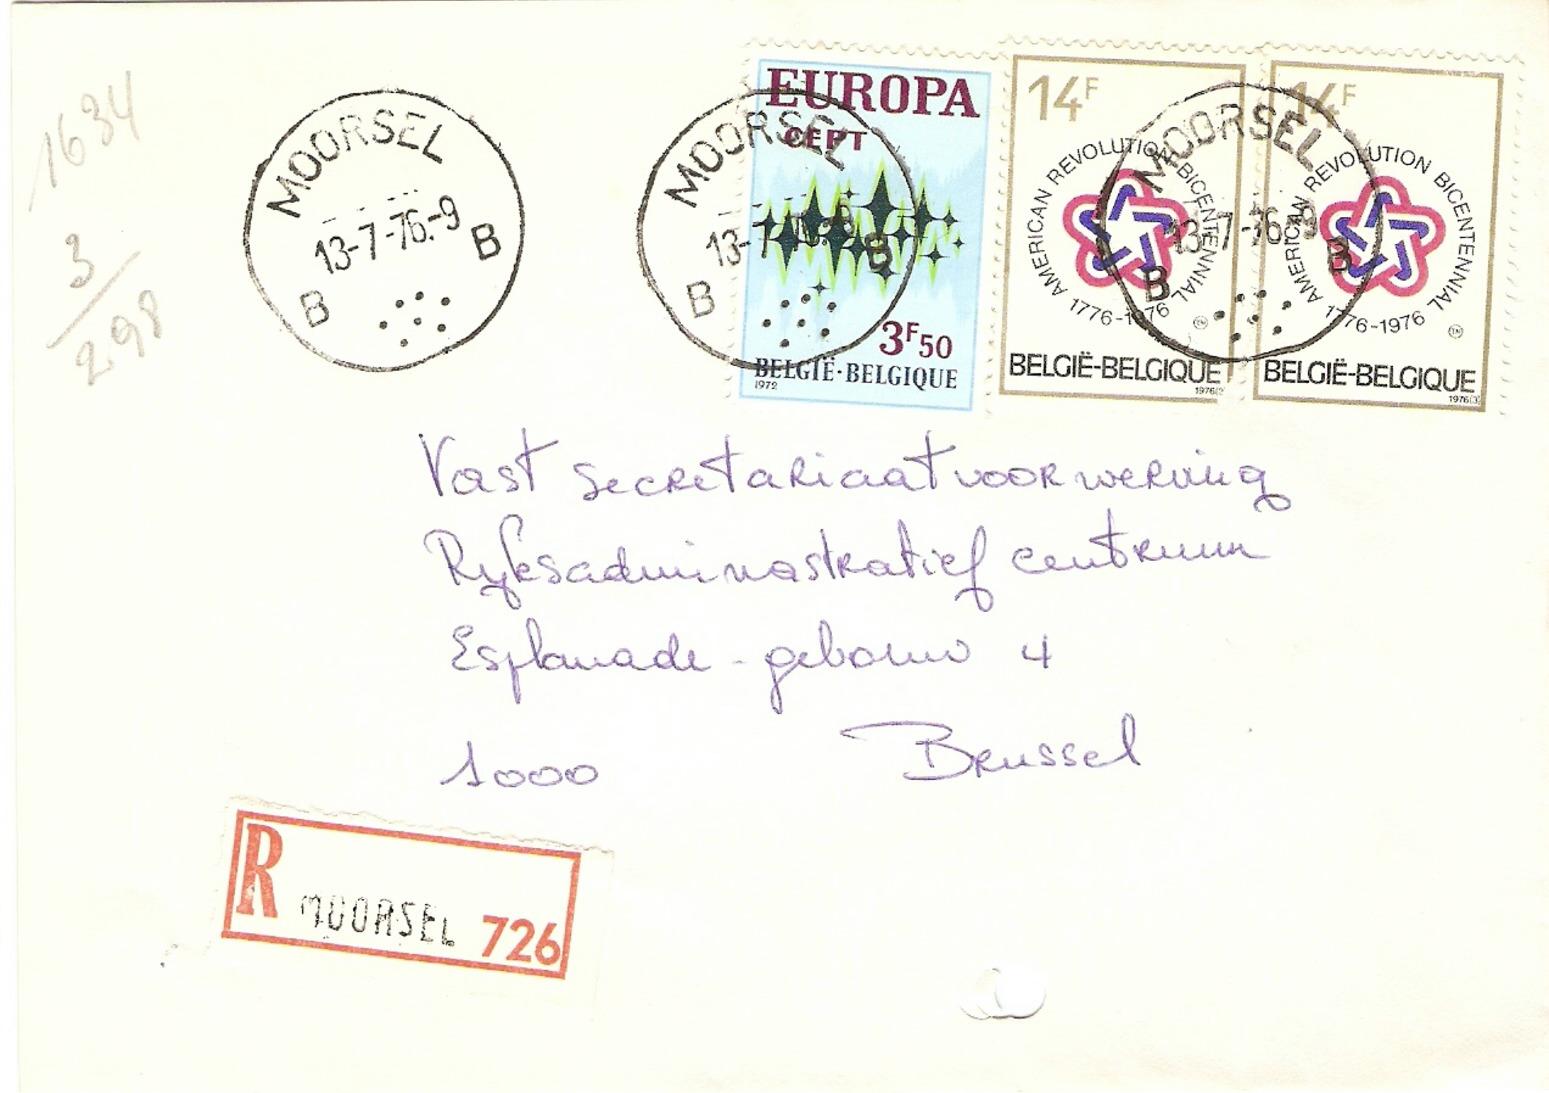 1634
3/298
MOORSEL
13-7-76.-9
B B
MOORSEL
B B
EUROPA
CEPT
3F50
BELGIË·BELGIQUE
1972
14F
AMERICAN REVOLUTION BICENTENNIAL
1776-1976
BELGIË-BELGIQUE
MOORSEL
13-7-76.-9
B B
14F
AMERICAN REVOLUTION BICENTENNIAL
1776-1976
TM
BELGIË-BELGIQUE
1976(3)
Vast secretariaat voor werving
Ryksadminastratief centrum
Esplanade - gebouw 4
1000 Brussel
R MOORSEL 726